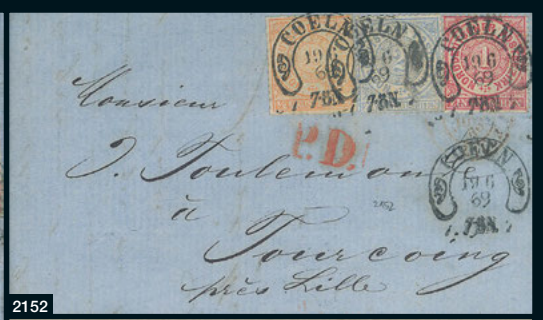 COELN
19 6
69
7-8N.
COELN
19 6
69
7-8N.
COELN
19 6
69
7-8N.
P.D.
COELN
19 6
69
7-8N.
Monsieur
J. Toulemon
à
Tourcoing
près Lille
2152
2152